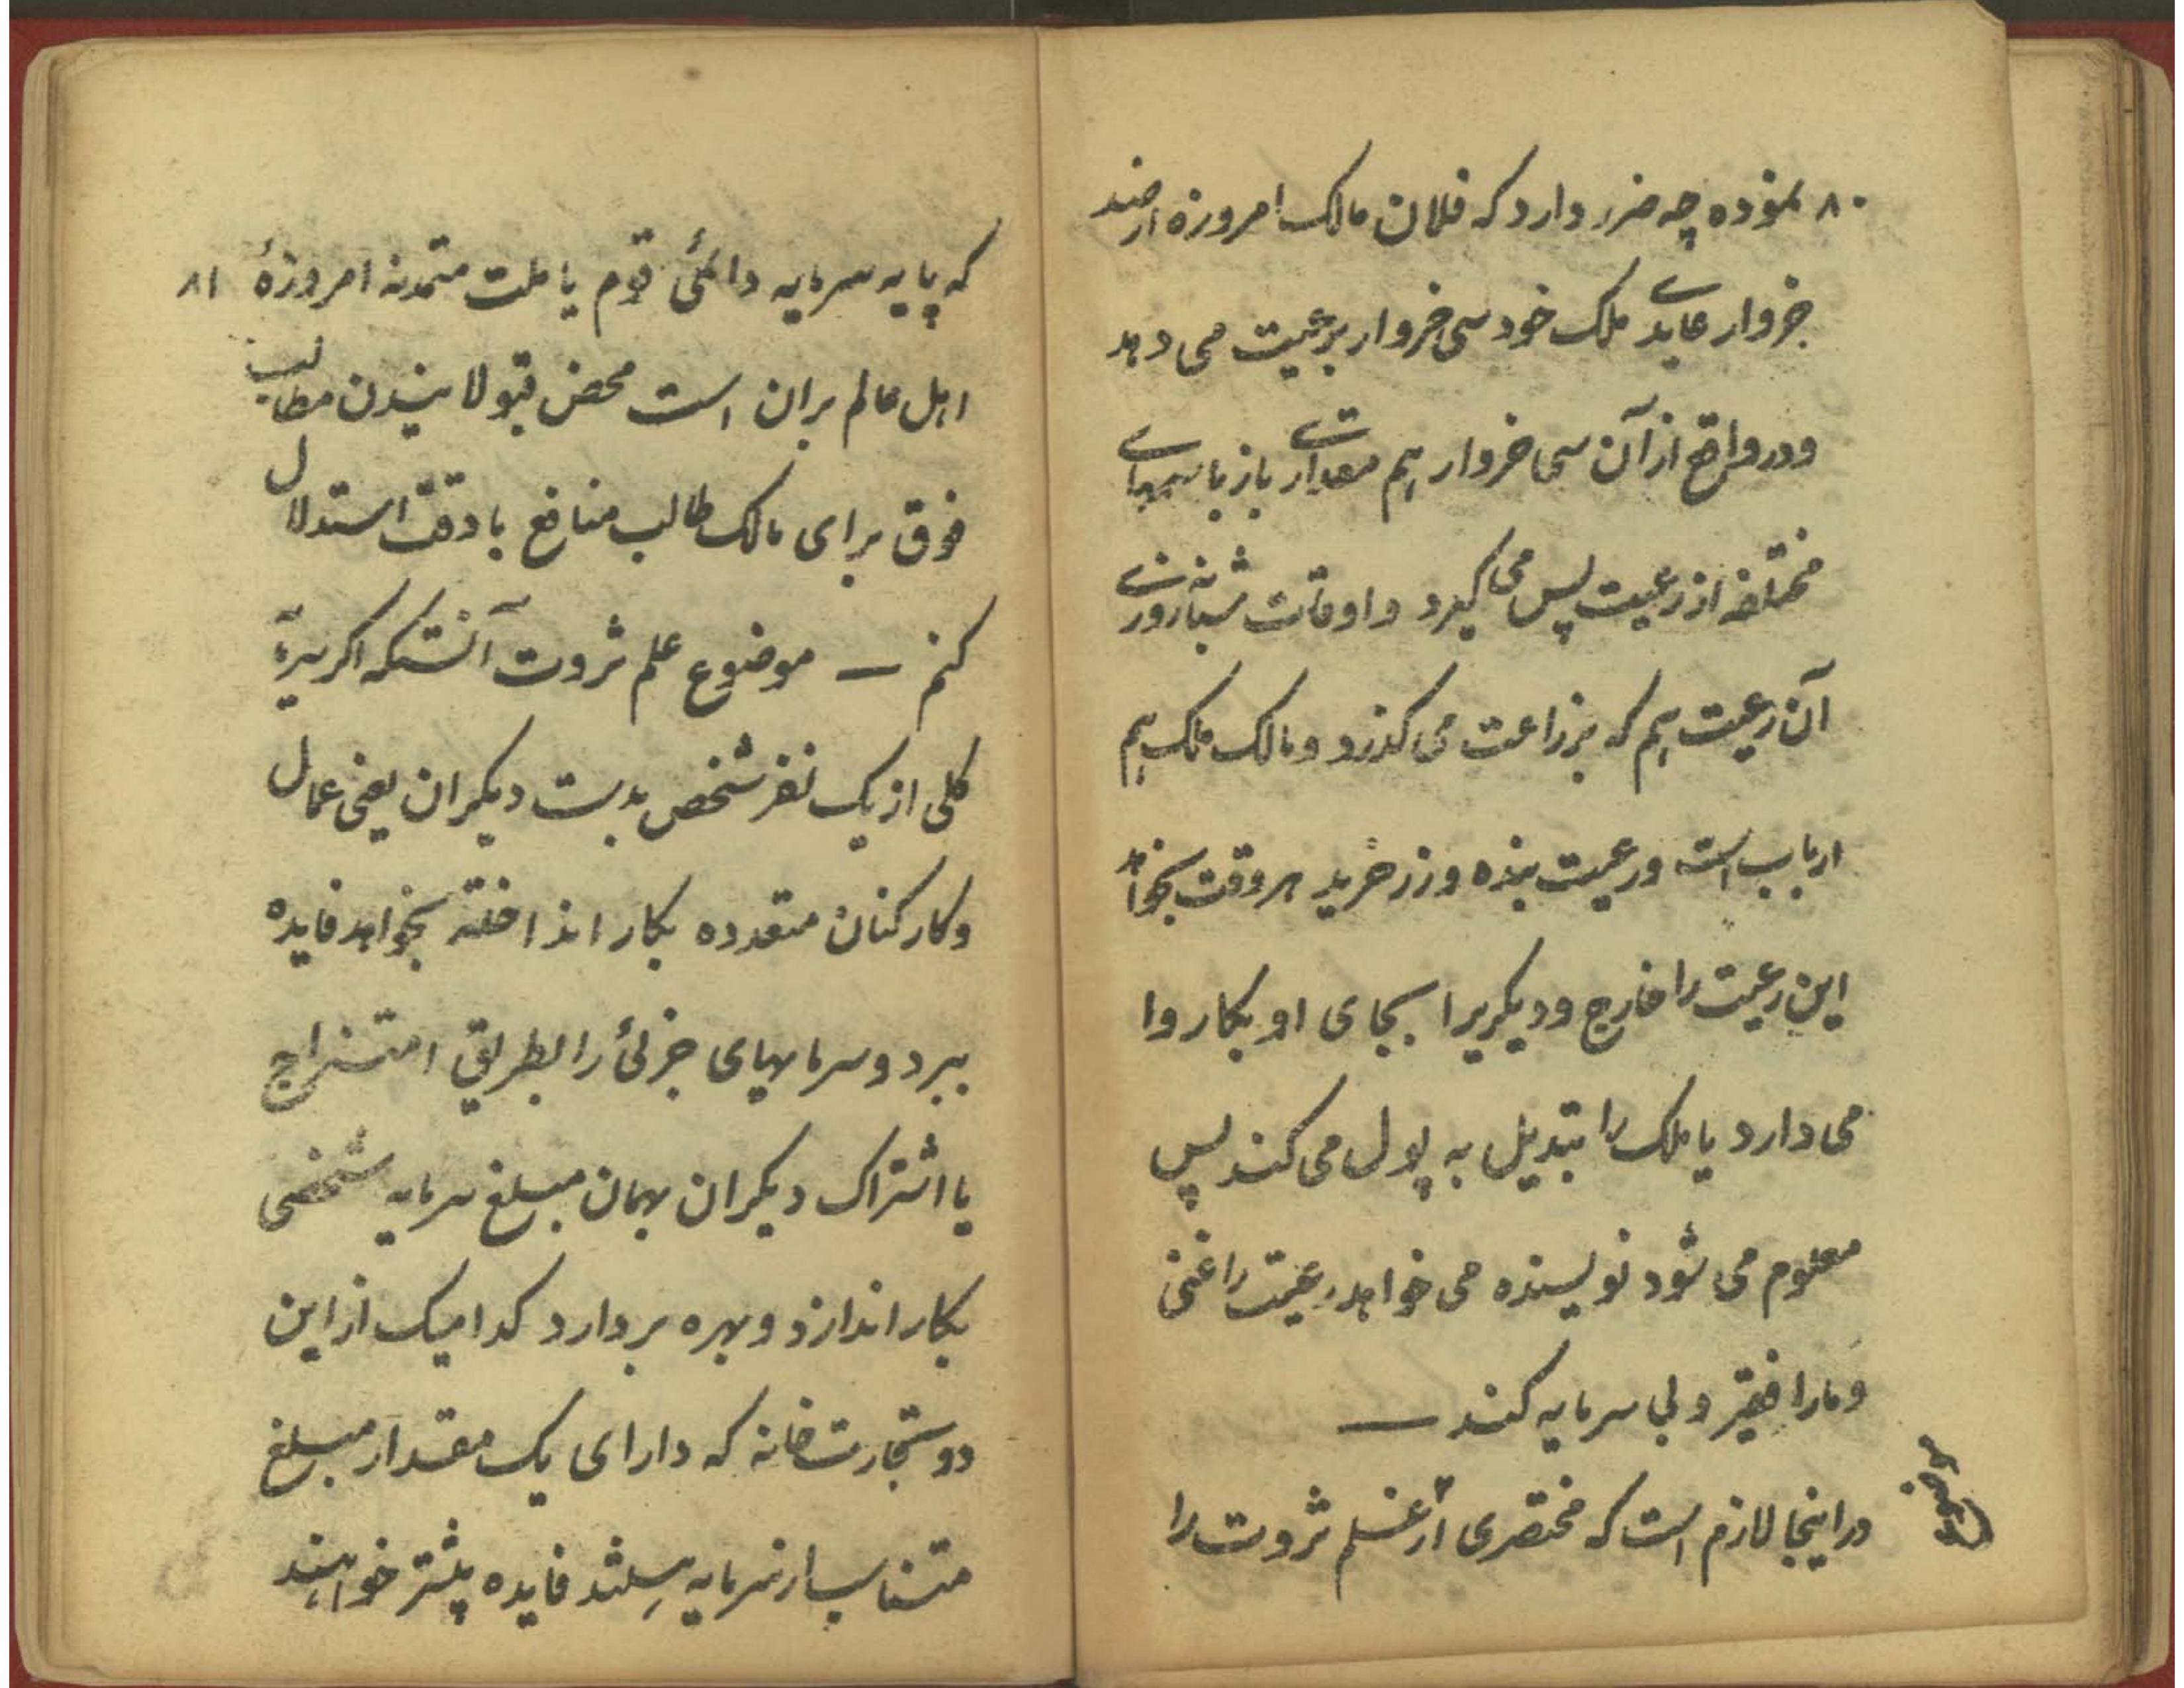 ۸۰ نموده چه ضرر دارد که فلان مالک امروزه از صد
خروار عایدی ملک خود سی خروار برعیت می دهد
ودر واقع از آن سی خروار هم مقداری باز باسمهای
مختلفه از رعیت پس می گیرد و اوقات شبانه روزی
آن رعیت هم که بزراعت می گذرد و مالک ملک هم
ارباب است ورعیت بنده وزر خرید هر وقت بخواهد
این رعیت را خارج و دیگریرا بجای او بکار وا
می دارد یا ملک را تبدیل به پول می کند پس
معلوم می شود نویسنده می خواهد رعیت را غنی
و مارا فقیر و بی سرمایه کند —
در اینجا لازم است که مختصری از علم ثروت را
که پایه سرمایه دائمی قوم یا ملت متمدنه امروزهٔ ۸۱
اهل عالم بران است محض قبولانیدن مطالب
فوق برای مالک طالب منافع با دقت استدلال
کنم — موضوع علم ثروت آنستکه اگر سرمایه
کلی از یک نفر شخص بدست دیگران یعنی عمال
و کارکنان متعدده بکار انداخته بخواهد فایده
ببرد و سرمایهای جزئی را بطریق امتزاج
یا اشتراک دیگران بهمان مبلغ سرمایه شخصی
بکار اندازد و بهره بردارد کدامیک از این
دو تجارتخانه که دارای یک مقدار مبلغ
متناسب از سرمایه فایده بیشتر خواهند